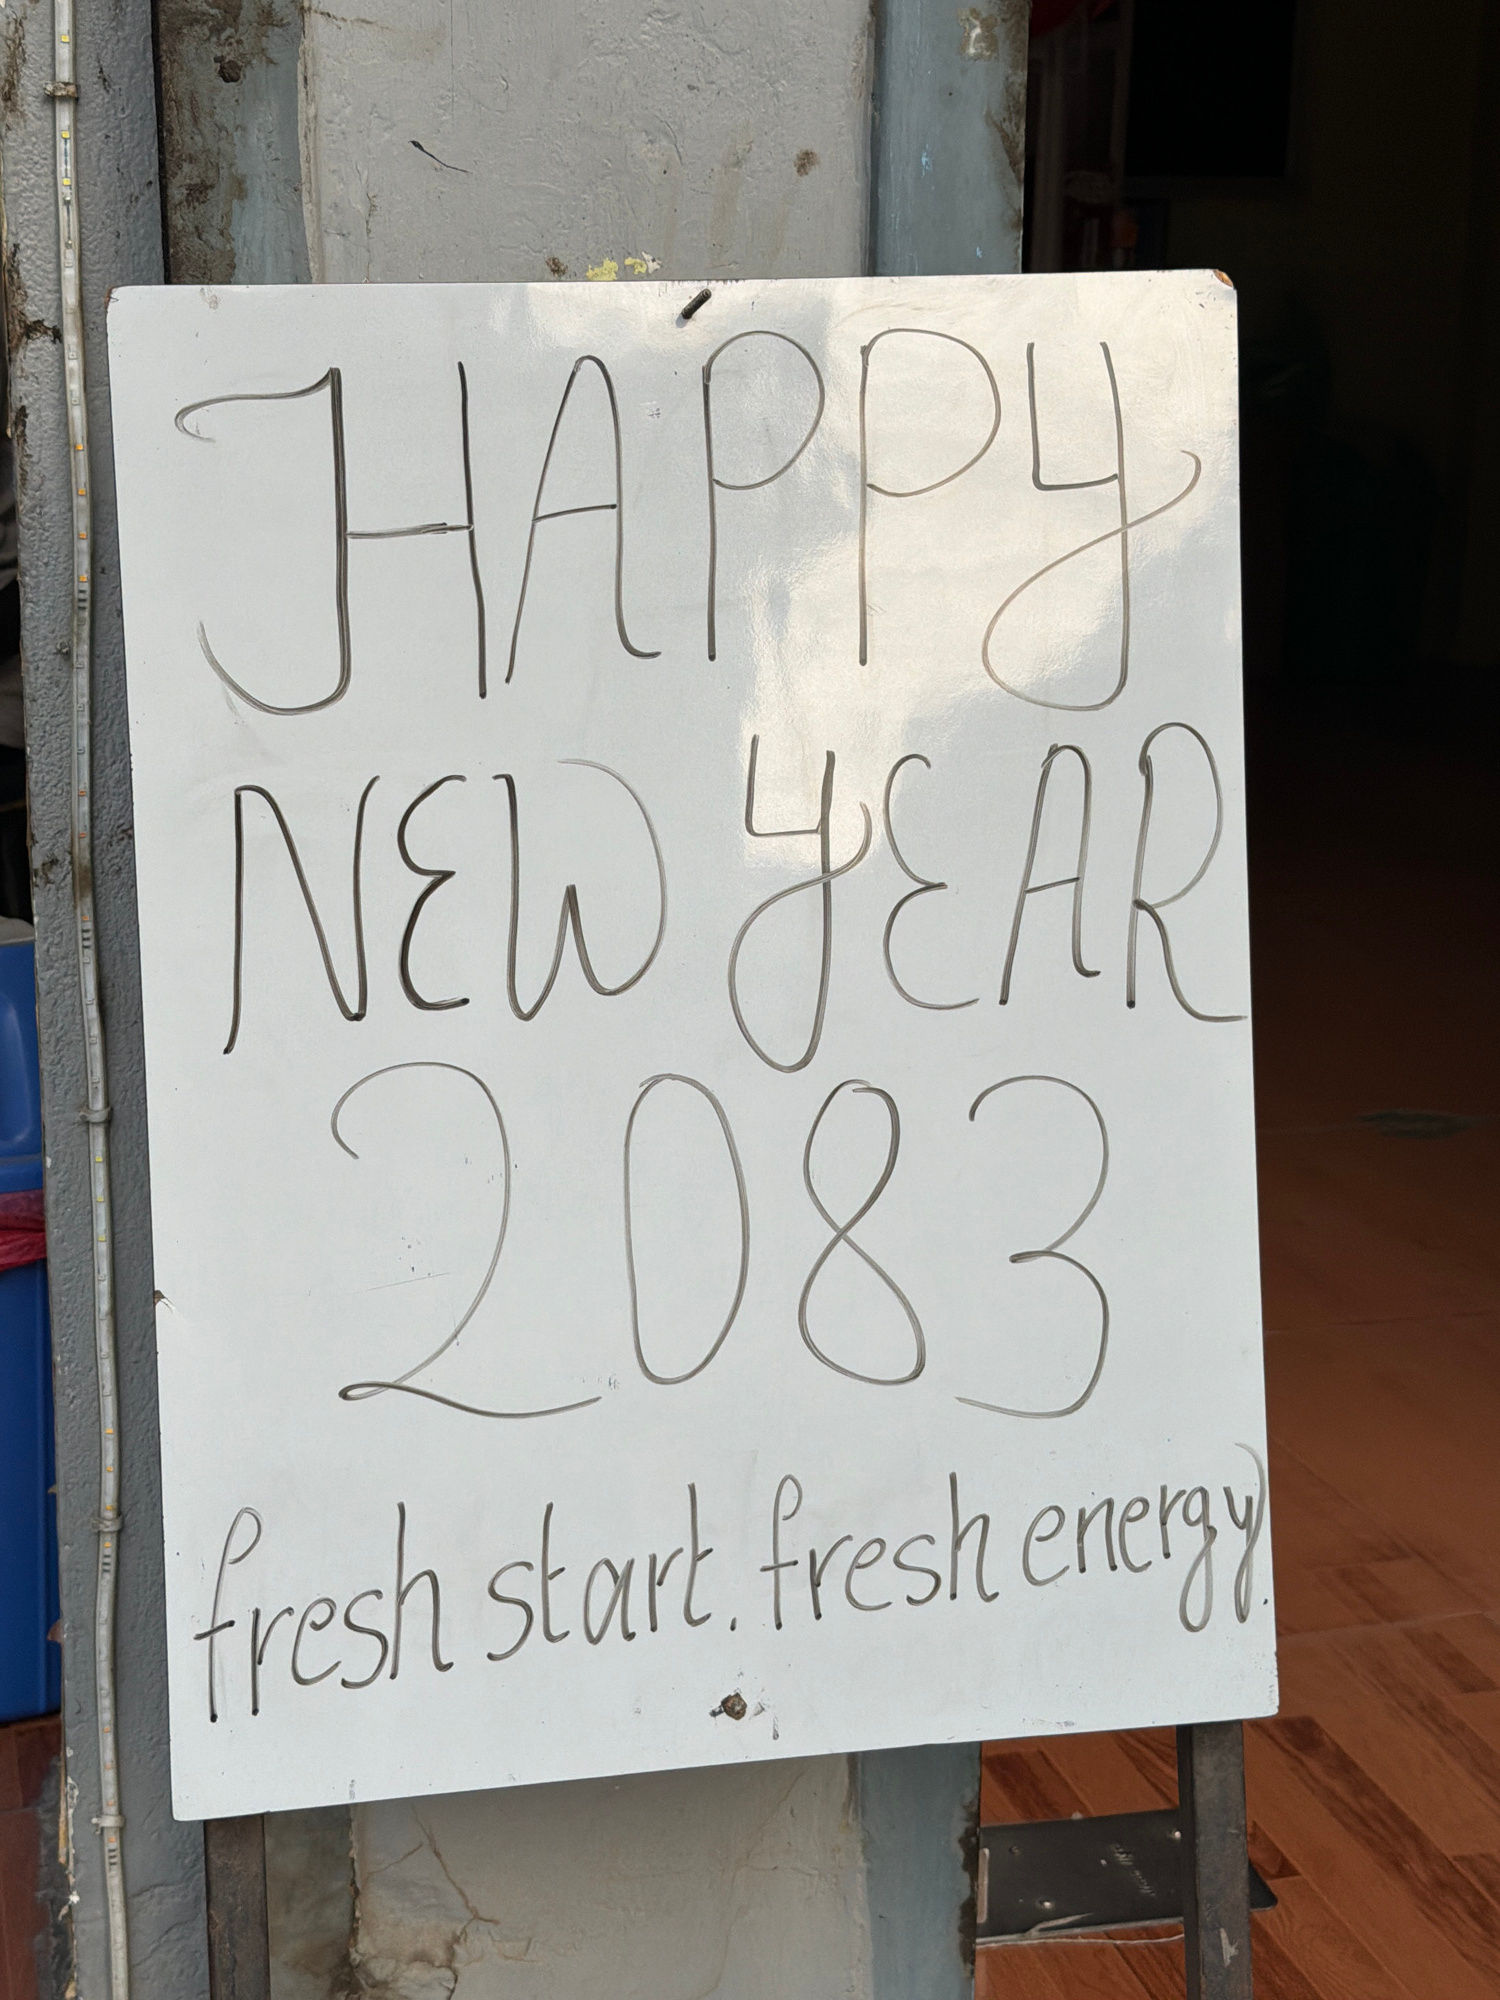 HAPPY
NEW YEAR
2083
fresh start. fresh energy.